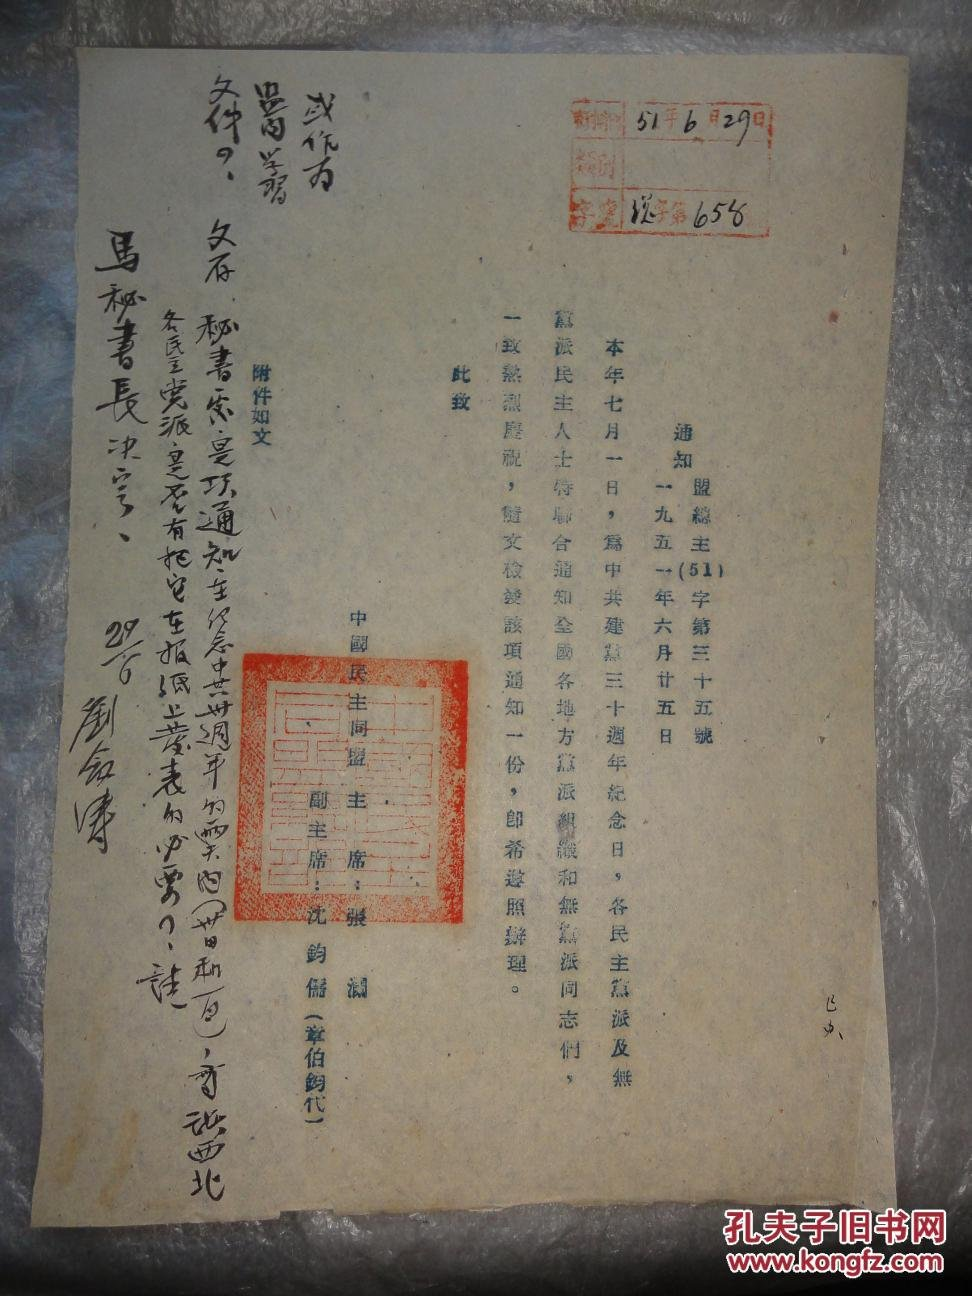 51年6月29日
類別
字號
字第658
盟總主(51)字第三十五號
通知
一九五一年六月廿五日
本年七月一日，為中共建黨三十週年紀念日，各民主黨派及無
黨派民主人士特聯合通知全國各地方黨派組織和無黨派同志們，
一致熱烈慶祝，隨文檢發該項通知一份，卽希遵照辦理。
此致
中國民主同盟 主席：張瀾
副主席：沈鈞儒（章伯鈞代）
附件如文
或作为
學習
文件？、
文存、
秘書處是項通知在纪念中共卅週年的
西北
各民主党派是否有把它在报纸上發表的必要？、請
馬秘書長决定、
29/6
已办
孔夫子旧书网
www.kongfz.com